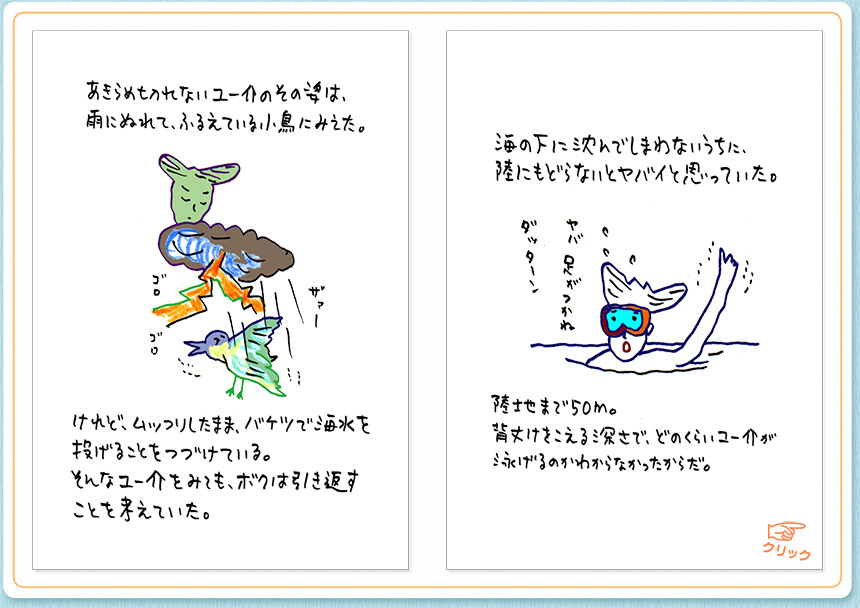 あきらめきれないユー介のその姿は、
雨にぬれて、ふるえている小鳥にみえた。
ゴロ
ゴロ
ザァー
けれど、ムッツリしたまま、バケツで海水を
投げることをつづけている。
そんなユー介をみても、ボクは引き返す
ことを考えていた。
海の下に沈んでしまわないうちに、
陸にもどらないとヤバイと思っていた。
ヤバ 足がつかね
ダッターン
陸地まで50m。
背丈けをこえる深さで、どのくらいユー介が
泳げるのかわからなかったからだ。
クリック